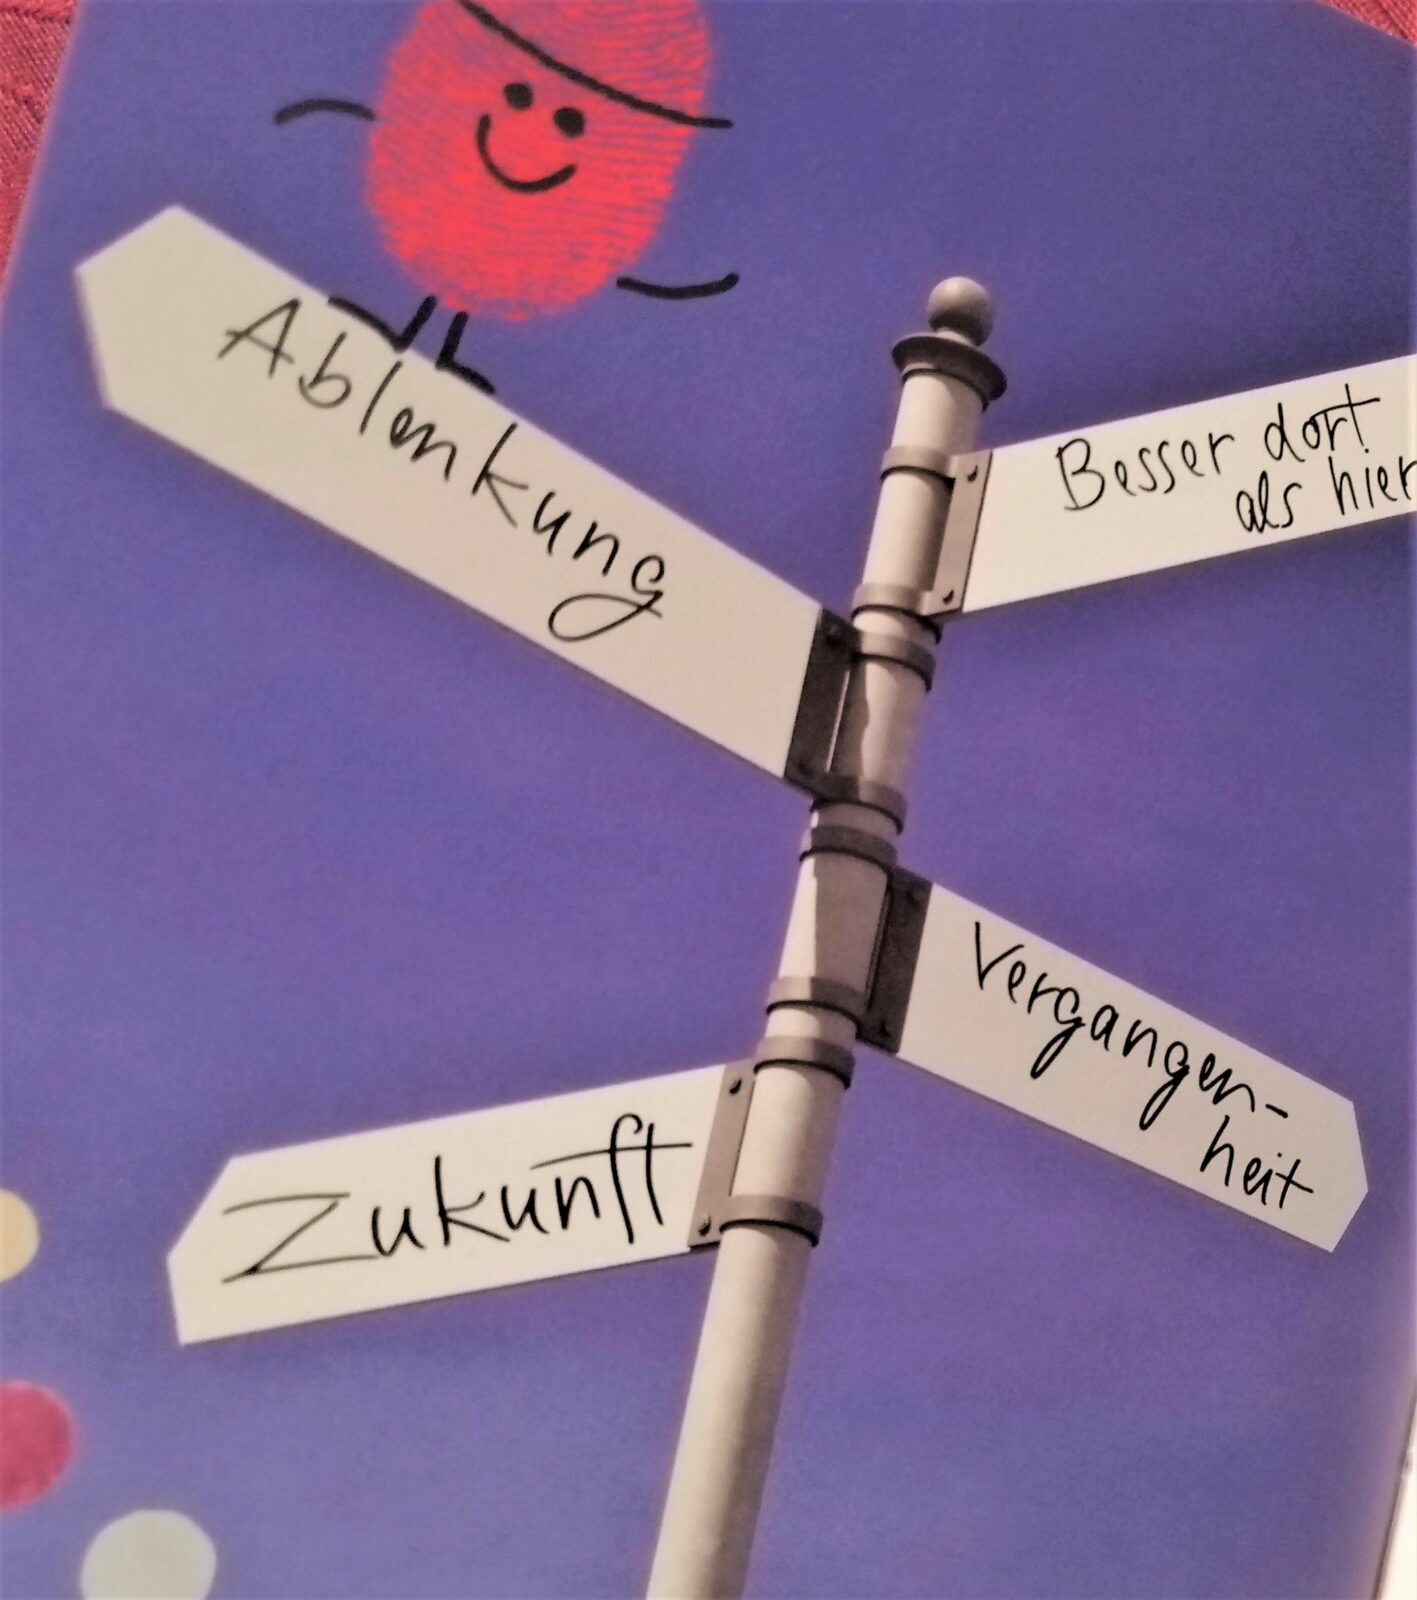 Ablenkung
Besser dort
als hier
Vergangen-
heit
Zukunft